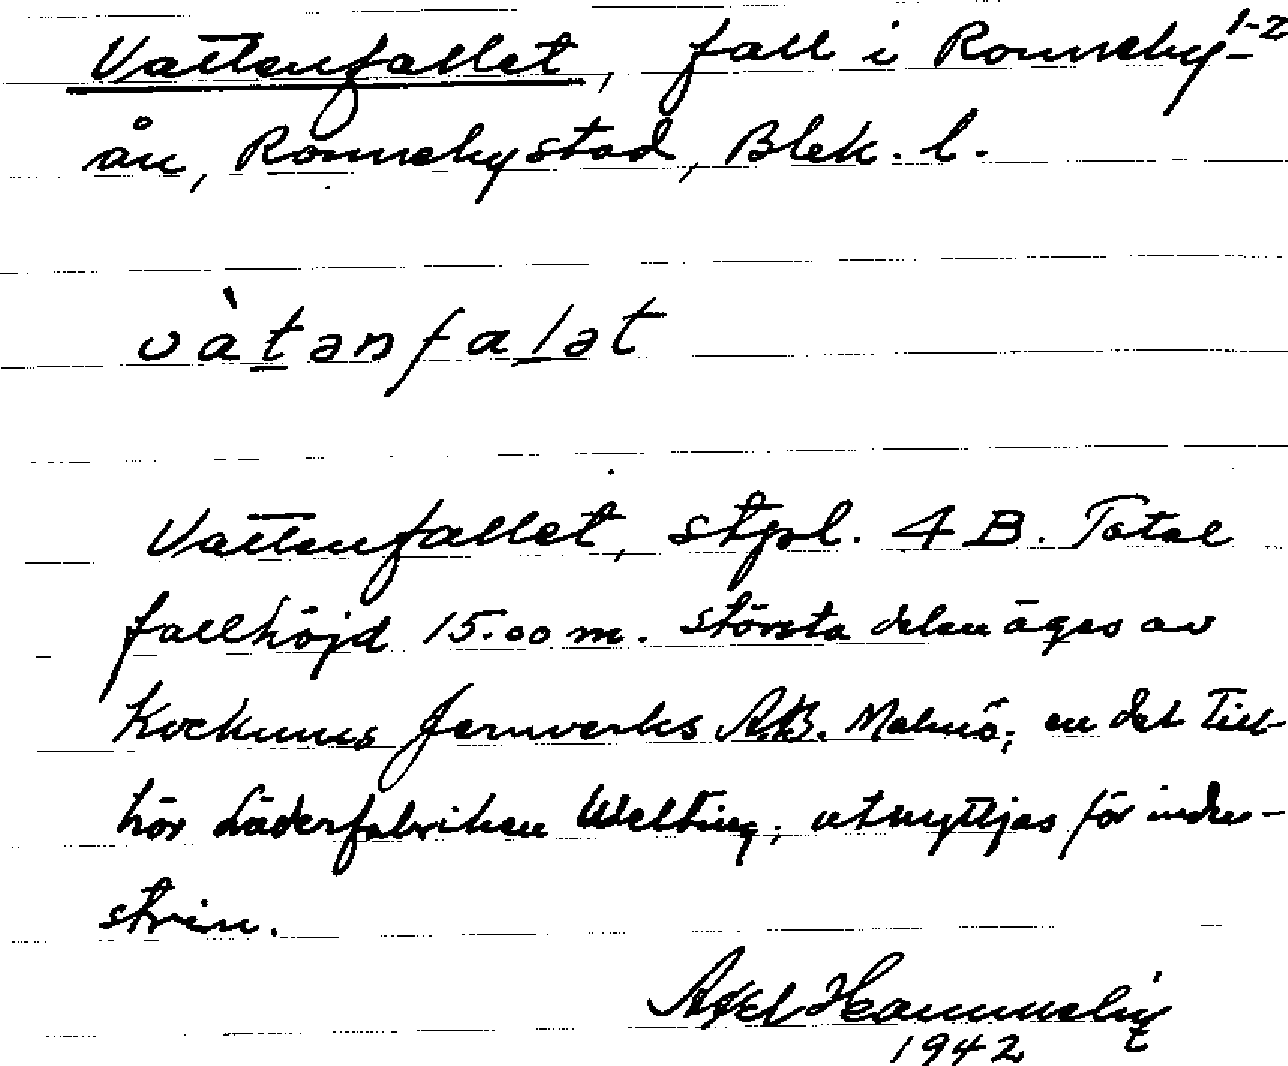 Vattenfallet, fall i Ronneby- 1-2
ån, Ronneby stad, Blek. l.
vàtənfalət
Vattenfallet, stpl. 4 B. Total
fallhöjd 15.00 m. Största delen äges av
Kockums Jernverks AB. Malmö; en del till-
hör Läderfabriken Welting; utnyttjas för indu-
strin.
Axel
1942